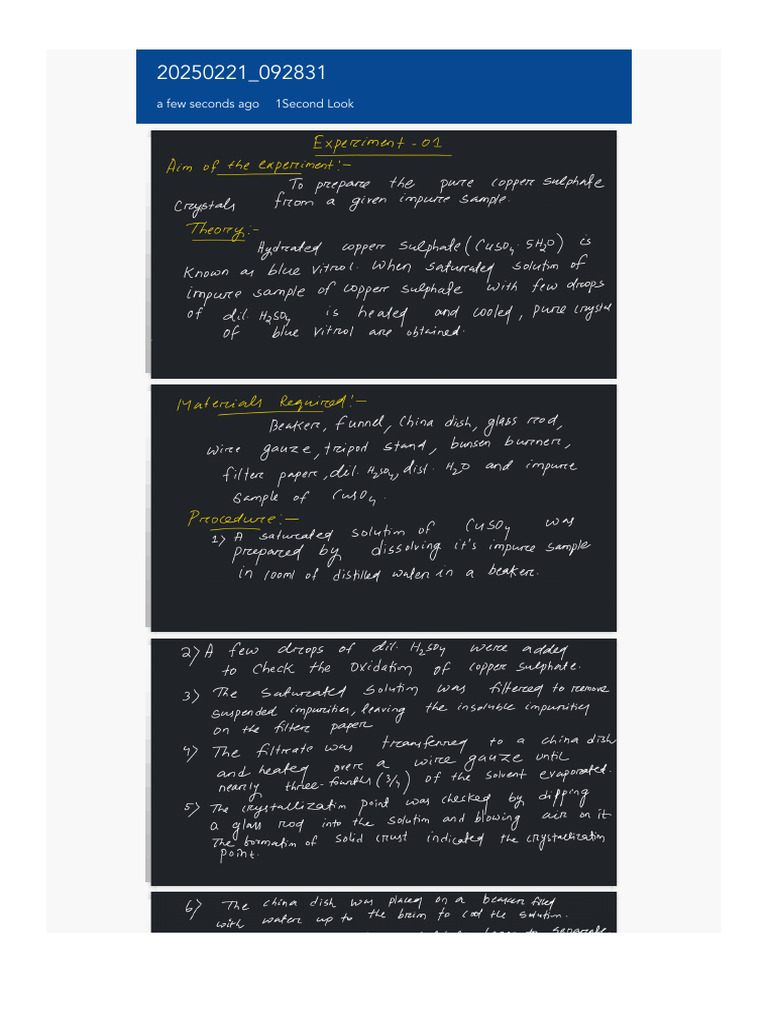 20250221_092831
a few seconds ago 1Second Look
Experiment - 01
Aim of the experiment:-
To prepare the pure copper sulphate
Crystals from a given impure sample.
Theory:-
Hydrated copper sulphate (CuSO4. 5H2O) is
Known as blue vitriol. When saturated solution of
impure sample of copper sulphate with few drops
of dil. H2SO4 is heated and cooled, pure crystal
of blue vitriol are obtained.
Materials Required:-
Beaker, funnel, China dish, glass rod,
wire gauze, tripod stand, bunsen burner,
filter paper, dil. H2SO4, dist. H2O and impure
Sample of CuSO4.
Procedure:-
1) A saturated solution of CuSO4 was
prepared by dissolving it's impure sample
in 100ml of distilled water in a beaker.
2) A few drops of dil. H2SO4 were added
to check the Oxidation of copper sulphate.
3) The Saturated solution was filtered to remove
suspended impurities, leaving the insoluble impurities
on the filter paper
4) The filtrate was transferred to a china dish
and heated over a wire gauze until
nearly three-fourths (3/4) of the solvent evaporated.
5) The crystallization point was checked by dipping
a glass rod into the solution and blowing air on it
The formation of solid crust indicated the crystallization
point.
6) The china dish was placed on a beaker filled
with water up to the brim to cool the solution.
separate